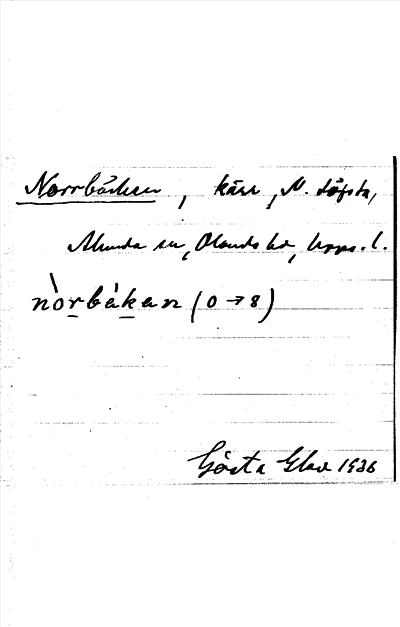 Norrbäcken, kärr, N. Löfsta,
Alunda sn, Olands hd, Upps. l.
nòrbä̀kan (o → 8)
Gösta Glav 1936